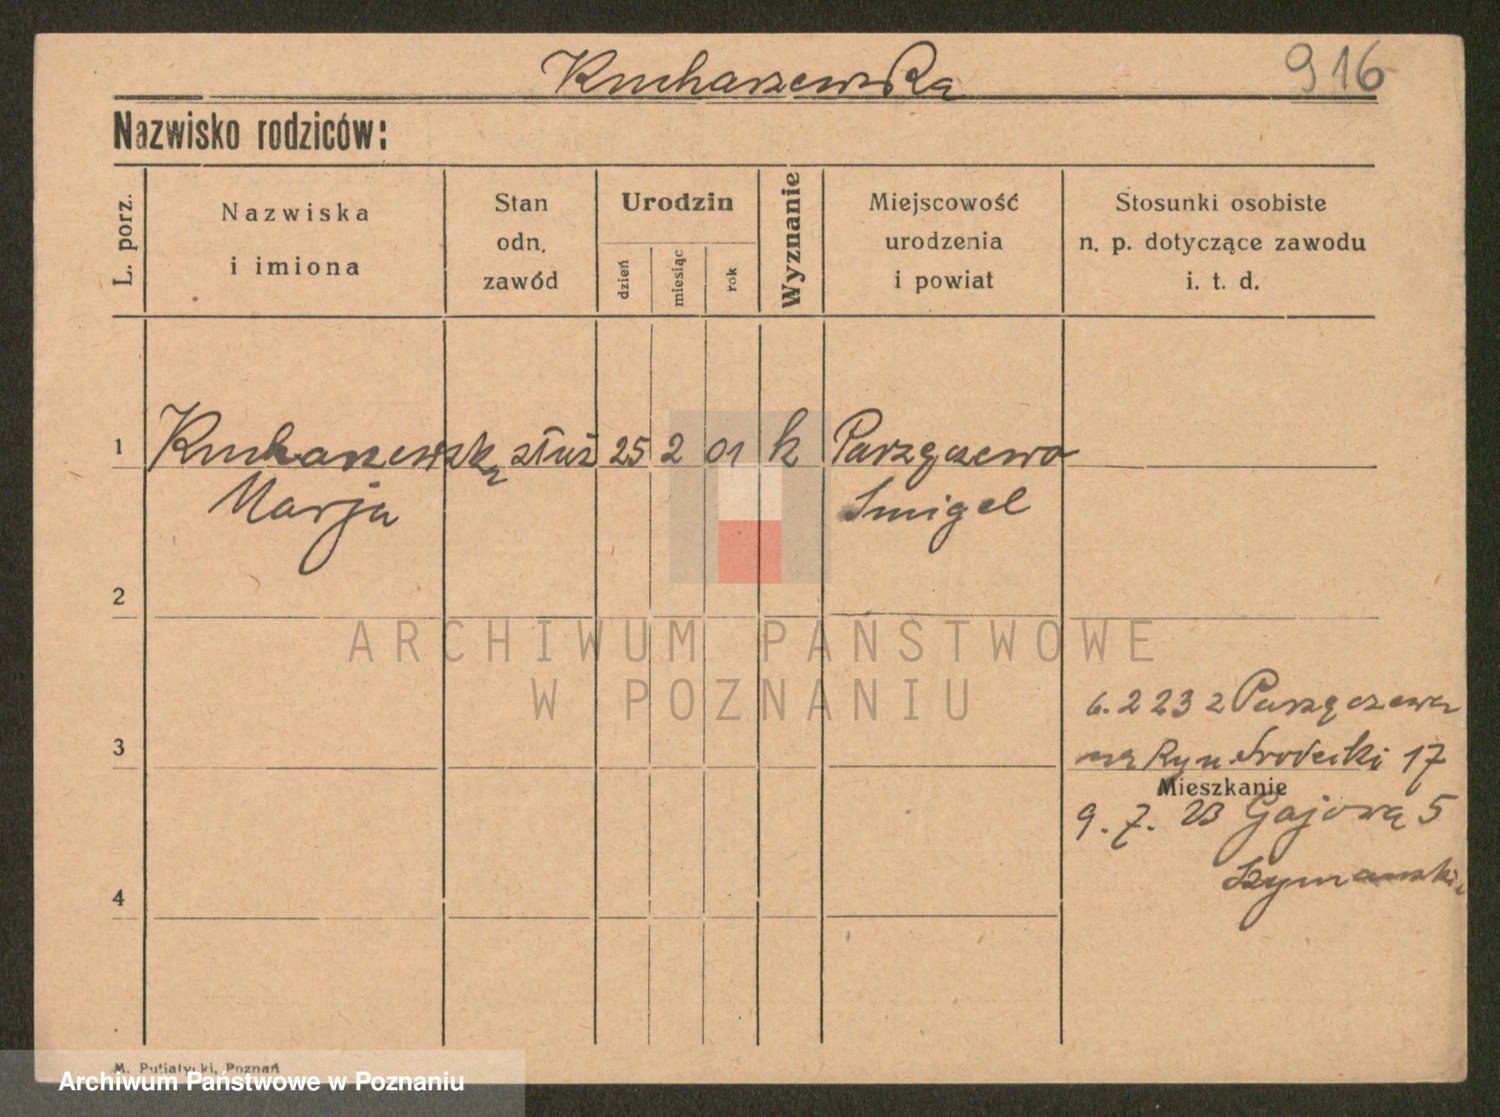 Kucharzewska
916
Nazwisko rodziców:
L. porz.
Nazwiska
i imiona
Stan
odn.
zawód
Urodzin
dzień
miesiąc
rok
Wyznanie
Miejscowość
urodzenia
i powiat
Stosunki osobiste
n. p. dotyczące zawodu
i. t. d.
1 Kucharzewska służ 25 2 01 k Parzęczewo
Marja Śmigel
2
ARCHIWUM PAŃSTWOWE
W POZNANIU
6. 2 23 z Parzęczewa
3
na Ryn Śródecki 17
Mieszkanie
9. 7. 23 Gajową 5
4
M. Putiatycki, Poznań
Archiwum Państwowe w Poznaniu